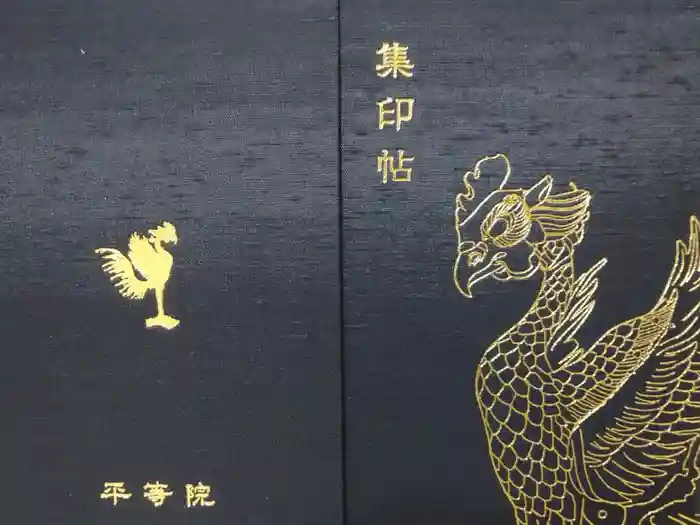 集印帖
平等院